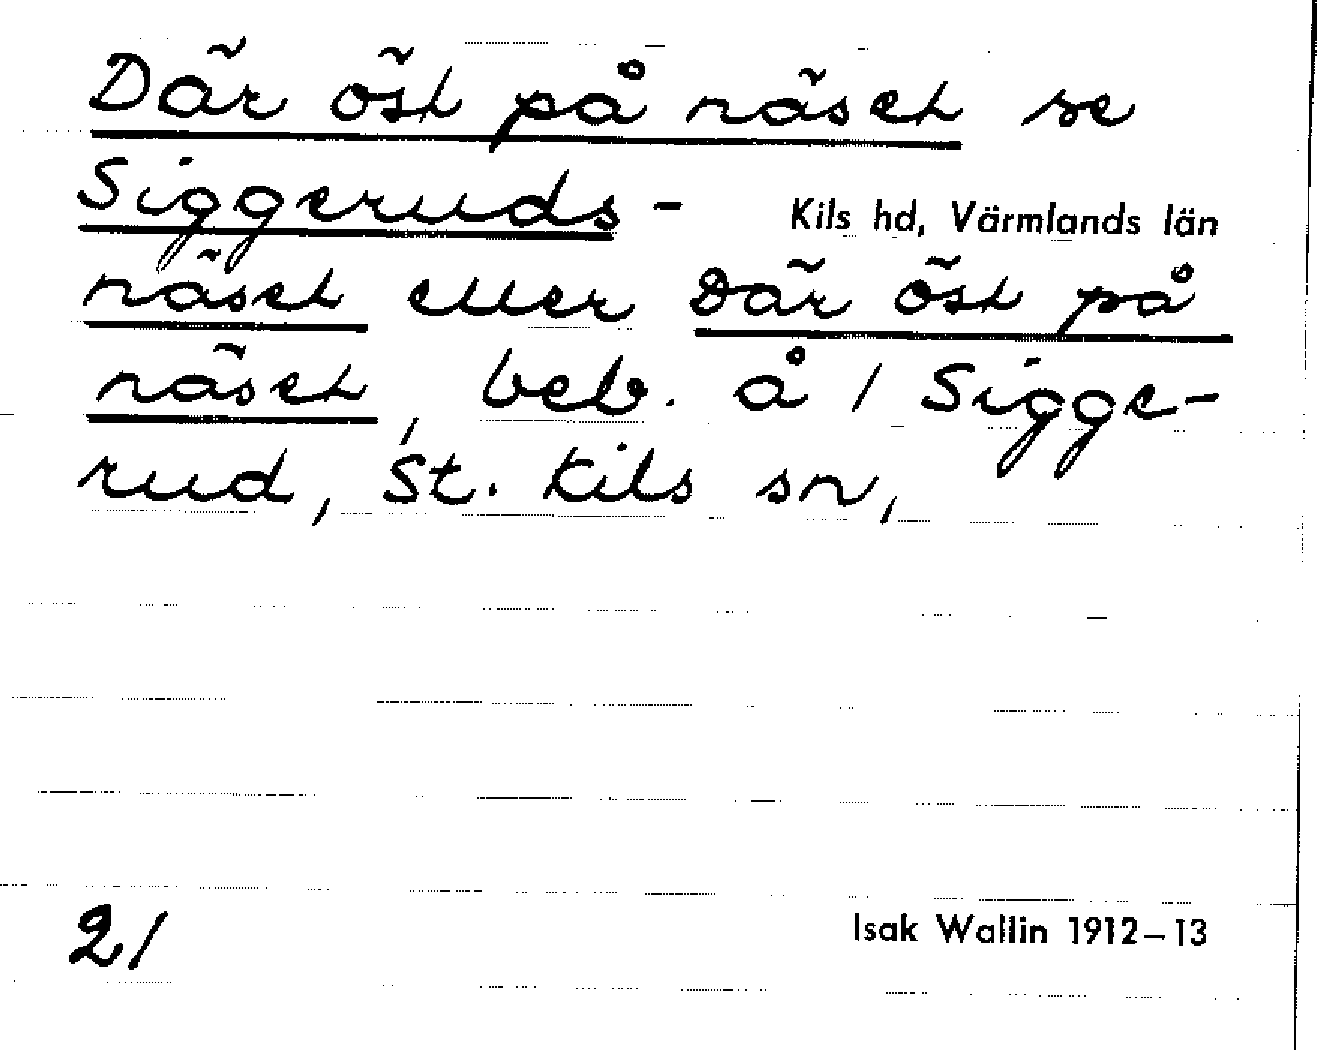 Där öst på näset se
Siggeruds-
Kils hd, Värmlands län
näset eller Där öst på
näset, beb. å 1 Sigge-
rud, St. Kils sn,
21
Isak Wallin 1912–13